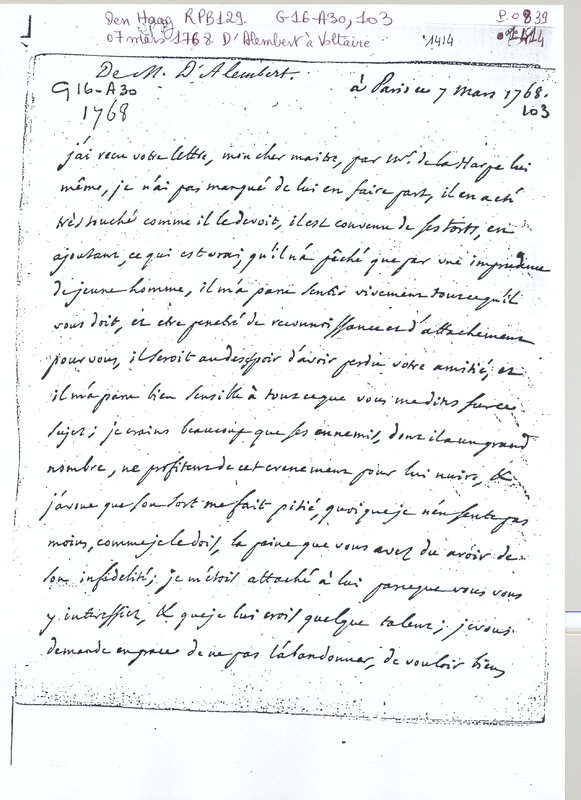 Den Haag RPB129. G16-A30, 103 P.0839
07 mars 1768 D'Alembert à Voltaire 1414
De M. D'Alembert. à Paris ce 7 mars 1768.
G16-A30 103
1768
j'ai recu votre lettre, mon cher maitre, par mr. de la Harpe lui
même, je n'ai pas manqué de lui en faire part, il en a été
très touché comme il le devoit, il est convenu de ses torts, en
ajoutant, ce qui est vrai, qu'il n'a pêché que par une imprudence
de jeune homme, il m'a paru sentir vivement tout ce qu'il
vous doit, et etre penetré de reconnoissance et d'attachement
pour vous, il seroit au desespoir d'avoir perdu votre amitié, et
il m'a paru bien sensible à tout ce que vous me dites sur ce
sujet; je crains beaucoup que ses ennemis, dont il a un grand
nombre, ne profitent de cet evenement pour lui nuire, &
j'avoue que son sort me fait pitié, quoique je n'en sente pas
moins, comme je le dois, la peine que vous avez du avoir de
son infidelité; je m'étois attaché à lui parceque vous vous
y interessiez, & que je lui crois quelque talent; je vous
demande en grace de ne pas l'abandonner, de vouloir bien